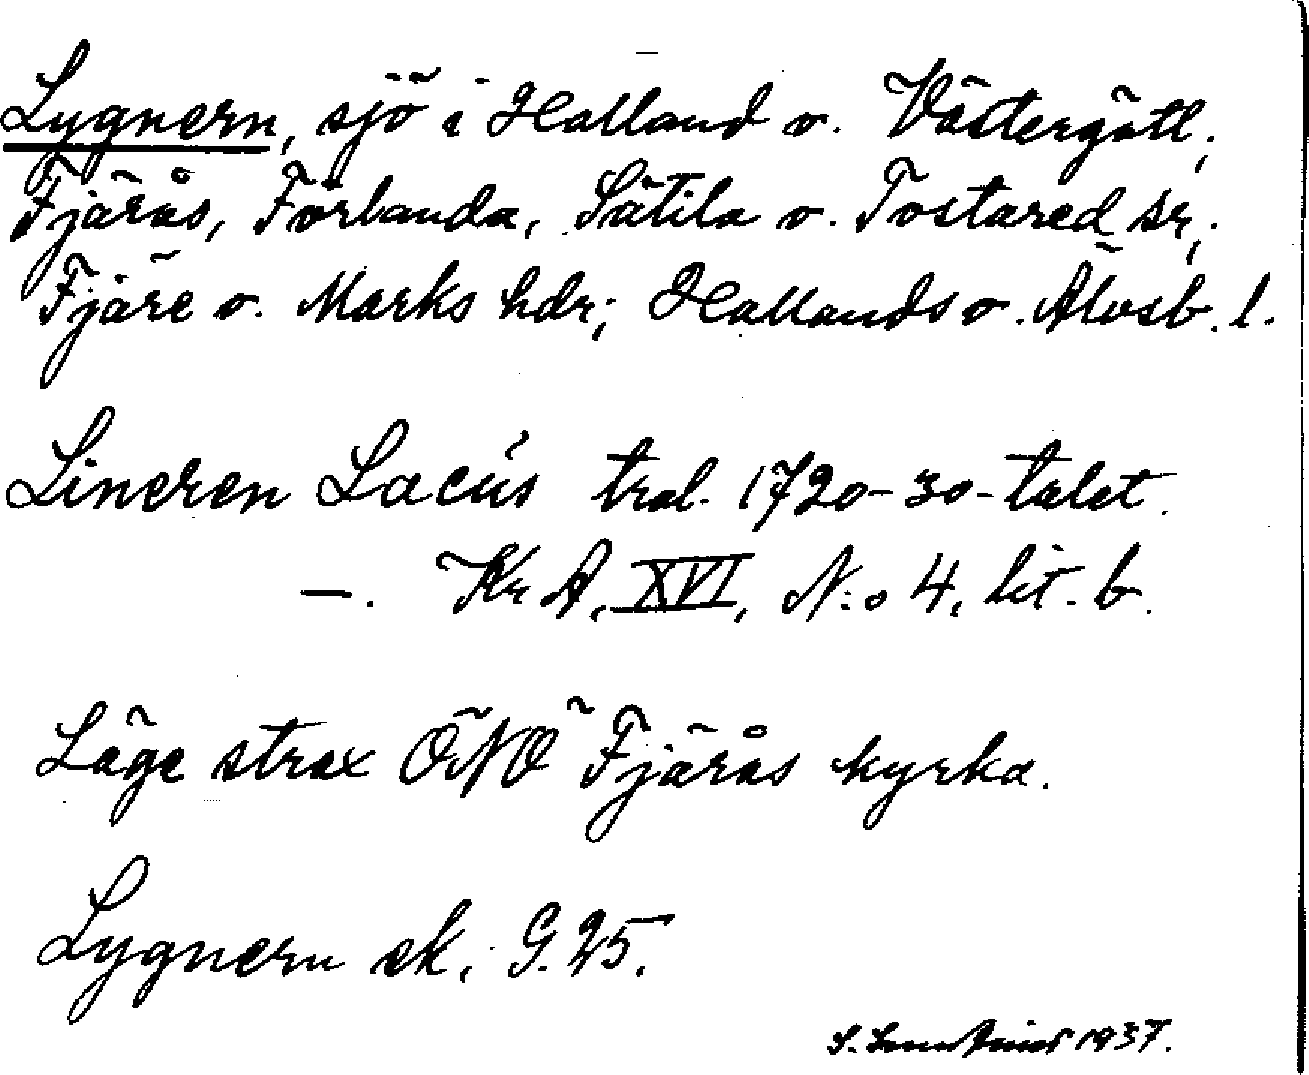 Lygnern, sjö i Halland o. Västergötl.;
Fjärås, Förlanda, Sätila o. Tostared sr;
Fjäre o. Marks hdr; Hallands o. Älvsb. l.
Lineren Lacus tral. 1720-30-talet.
—. Kr A, XVI, N:o 4, lit. b.
Läge strax ÖNÖ Fjärås kyrka.
Lygnern ek. G. 25.
S. 1937.